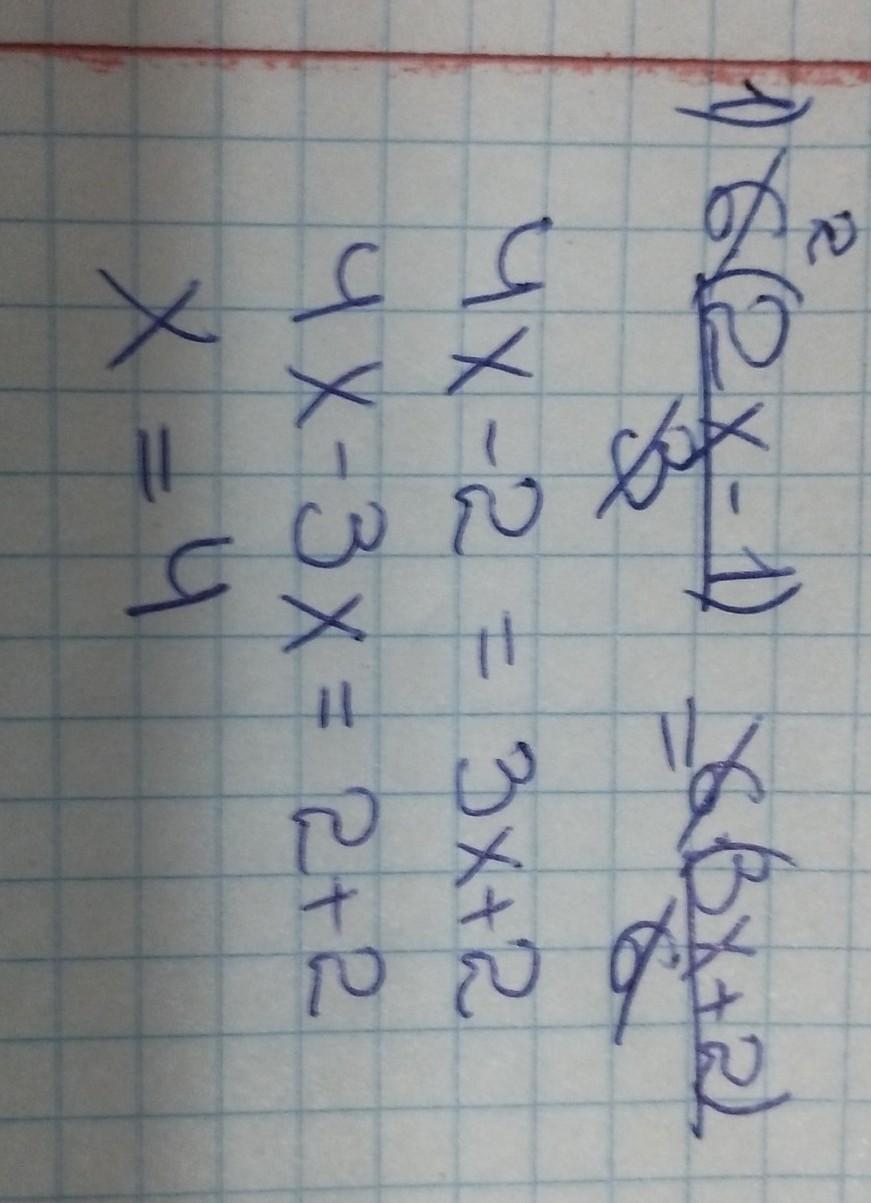 1) 6² (2x-1)/3 = 6(3x+2)/6
4x-2 = 3x+2
4x-3x = 2+2
x = 4